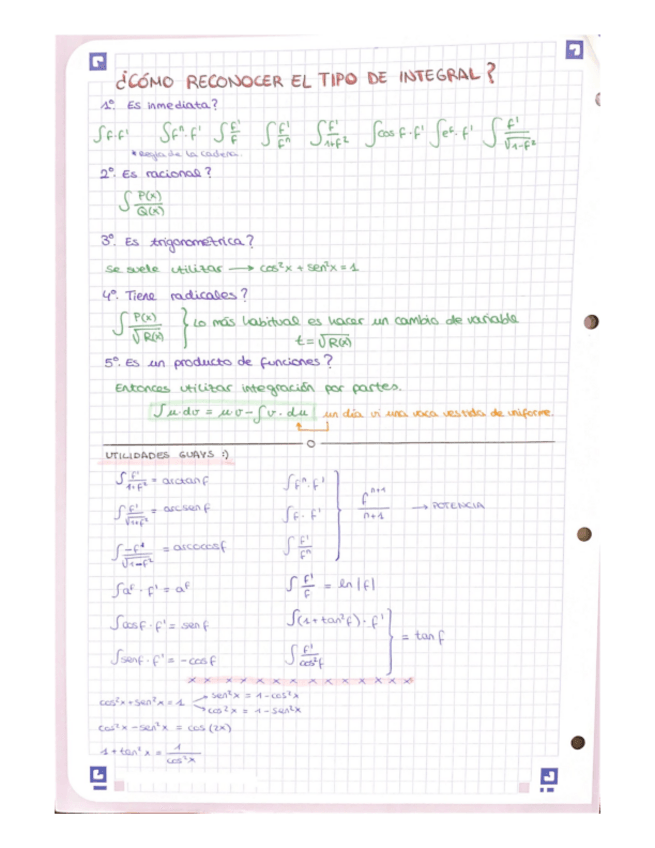 ¿CÓMO RECONOCER EL TIPO DE INTEGRAL?
1º. Es inmediata?
∫f·f' ∫fⁿ·f' ∫f'/f ∫f'/fⁿ ∫f'/1+f² ∫cos f·f' ∫eᶠ·f' ∫f'/√1-f²
*Regla de la cadena.
2º. Es racional?
∫P(x)/Q(x)
3º. Es trigonométrica?
Se suele utilizar → cos²x + sen²x = 1
4º. Tiene radicales?
∫P(x)/√R(x) } Lo más habitual es hacer un cambio de variable
t = √R(x)
5º. Es un producto de funciones?
Entonces utilizar integración por partes.
∫u·dv = u·v - ∫v·du un día vi una vaca vestida de uniforme.
UTILIDADES GUAYS :)
∫f'/1+f² = arctan f
∫f'/√1+f² = arcsen f
∫-f'/√1-f² = arcocos f
∫aᶠ·f' = aᶠ
∫cos f·f' = sen f
∫sen f·f' = -cos f
∫fⁿ·f'
∫f·f'
∫f'/fⁿ
} fⁿ⁺¹/n+1 → POTENCIA
∫f'/f = ln|f|
∫(1+tan²f)·f'
∫f'/cos²f
] = tan f
x x x x x x x x x x x x x x x x
cos²x + sen²x = 1
sen²x = 1 - cos²x
cos²x = 1 - sen²x
cos²x - sen²x = cos(2x)
1 + tan²x = 1/cos²x